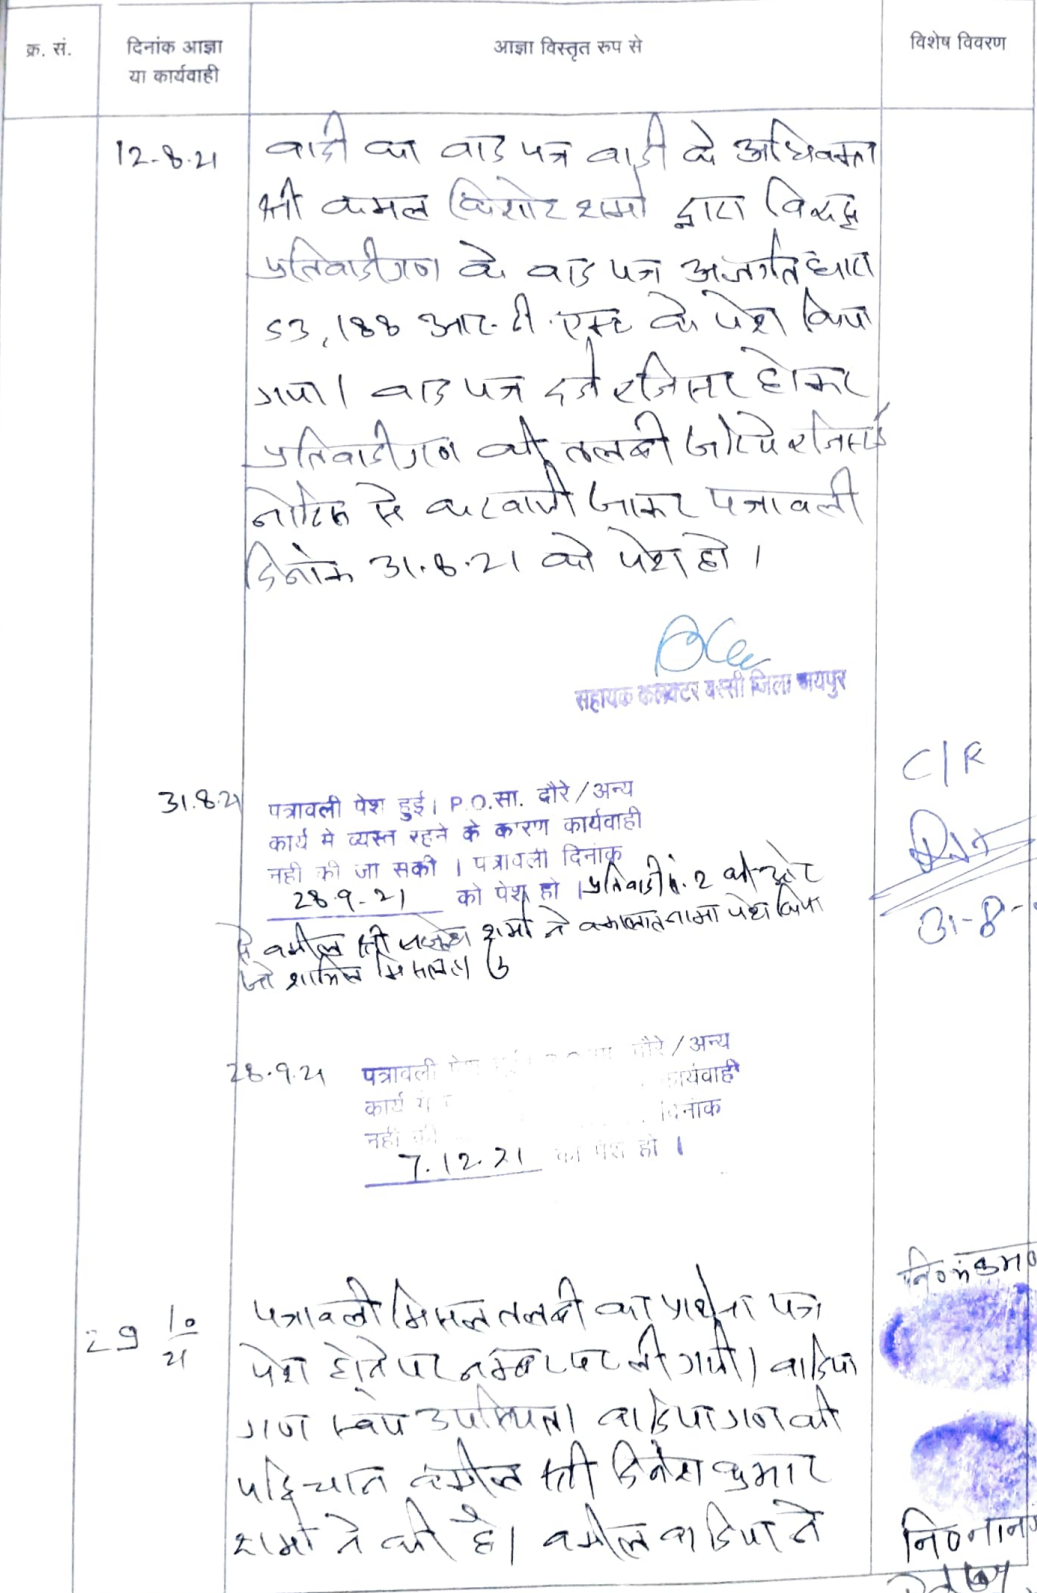 क्र. सं.
दिनांक आज्ञा
या कार्यवाही
आज्ञा विस्तृत रुप से
विशेष विवरण
12-8-21
वादी का वाद पत्र वादी के अधिवक्ता
श्री कमल किशोर शर्मा द्वारा विरुद्ध
प्रतिवादीगण के वाद पत्र अन्तर्गत धारा
53, 188 आर.टी.एक्ट के पेश किया
गया। वाद पत्र दर्ज रजिस्टर होकर
प्रतिवादीगण की तलबी जरिये रजिस्टर्ड
नोटिस से करवायी जाकर पत्रावली
दिनांक 31.8.21 को पेश हो।
सहायक कलक्टर बस्सी जिला जयपुर
31.8.21
पत्रावली पेश हुई। P.O.सा. दौरे/अन्य
कार्य मे व्यस्त रहने के कारण कार्यवाही
नही की जा सकी । पत्रावली दिनांक
28.9-21 को पेश हो । प्रतिवादी नं. 2 की ओर
से वकील श्री शर्मा ने वकालतनामा पेश किया
जो शामिल मिसल
C/R
31-8-
28.9.21
पत्रावली दौरे/अन्य
कार्य कार्यवाही
नही दिनांक
7.12.21 को पेश हो ।
29 10/21
पत्रावली मिसल तलबी का प्रार्थना पत्र
पेश होने पर नम्बर पर ली गयी। वादिया
गण स्वयं उपस्थित। वादियागण की
पहिचान वकील श्री दिनेश कुमार
शर्मा ने की है। वकील वादिया ने